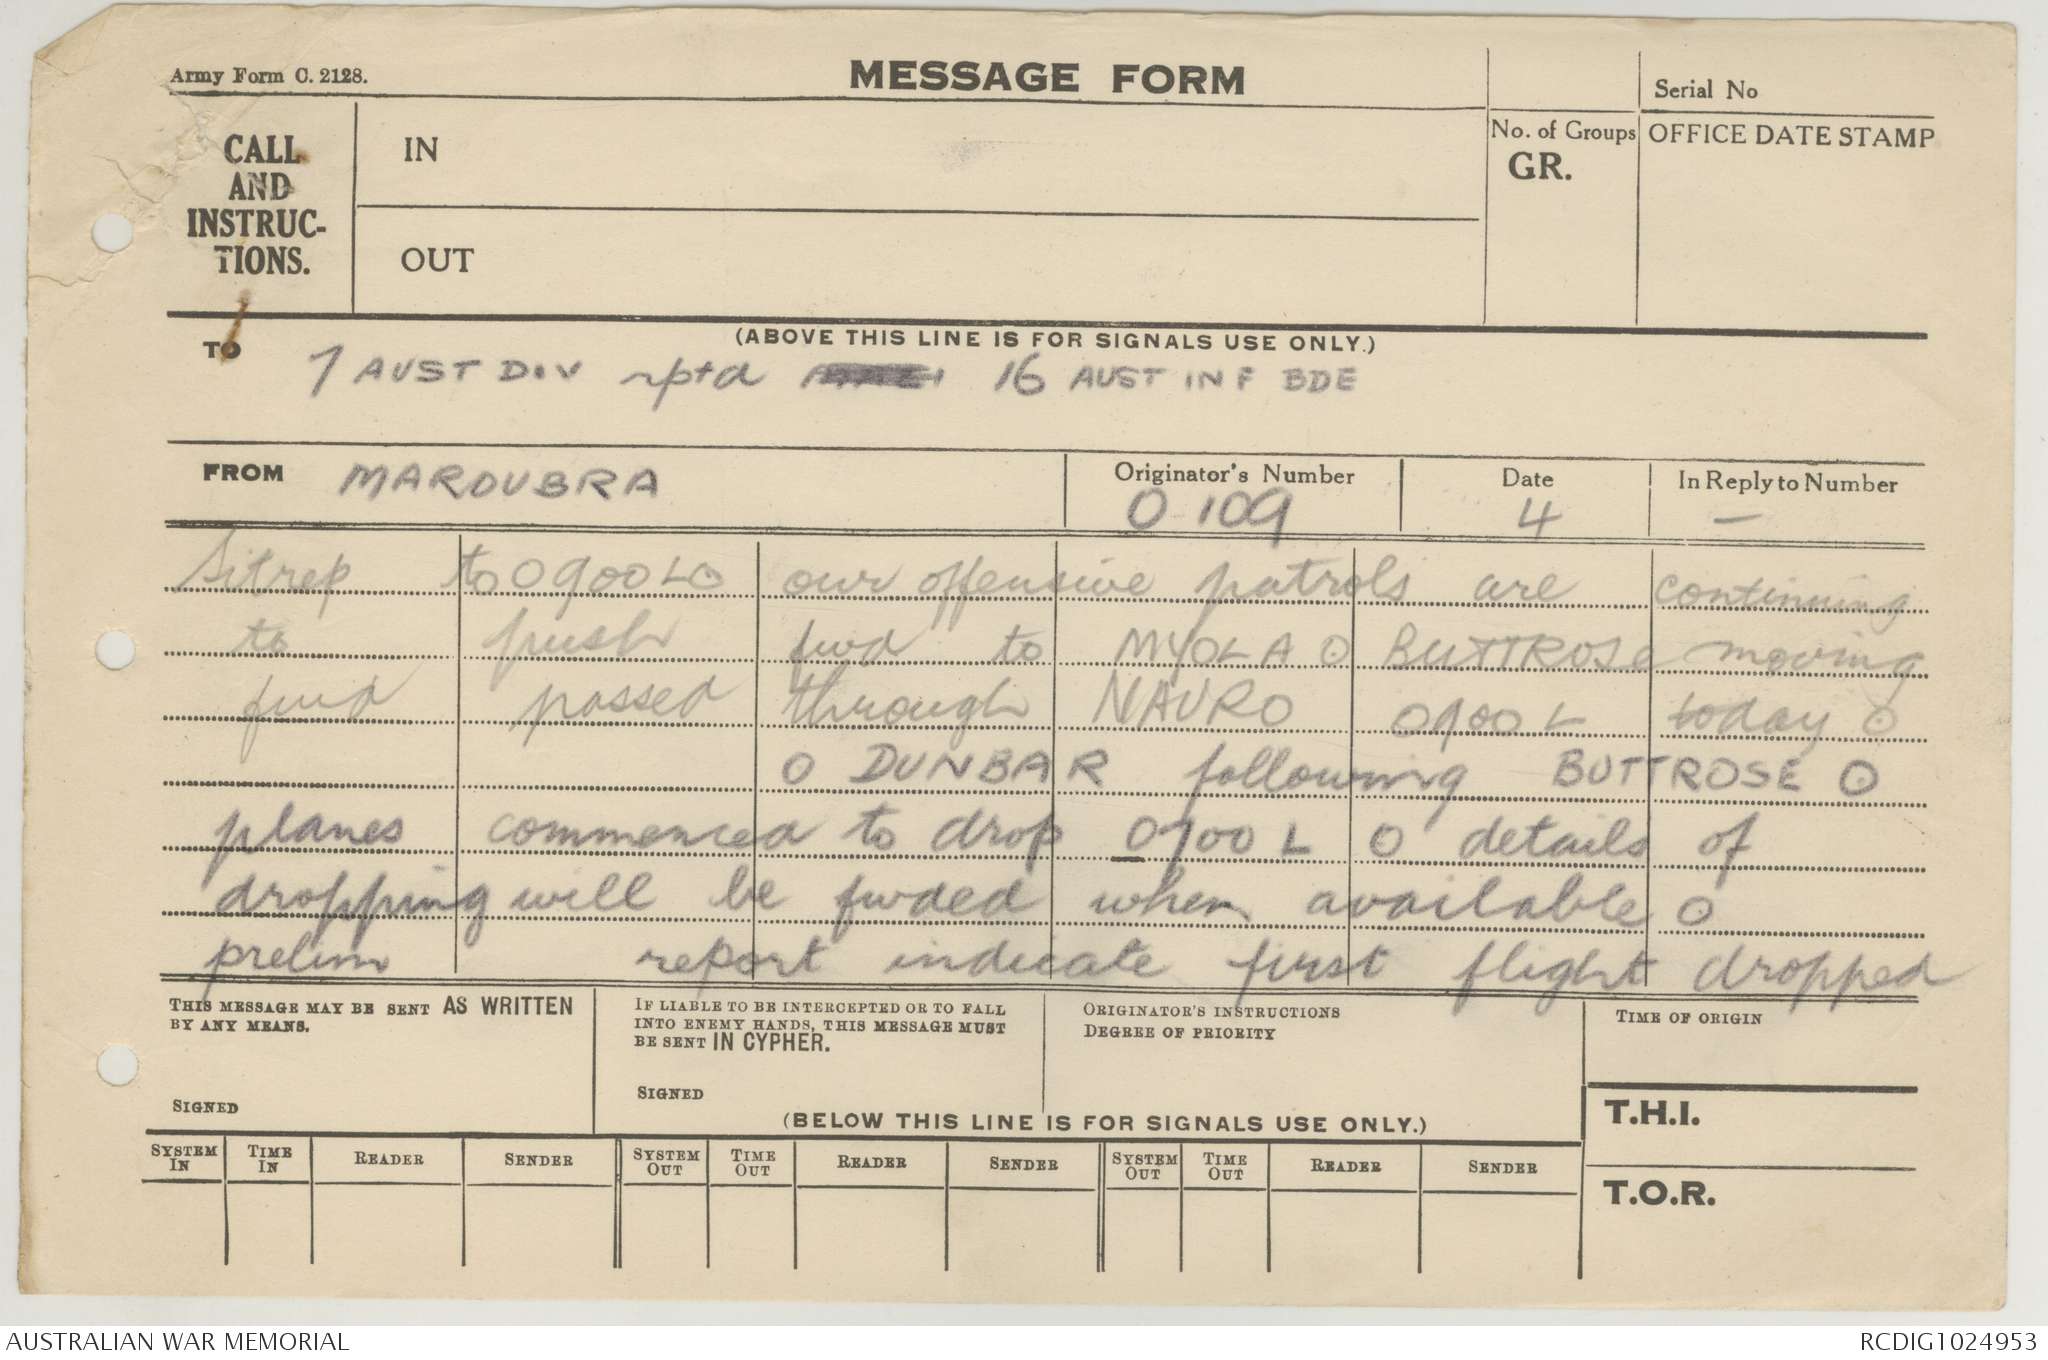 Army Form C. 2128.
MESSAGE FORM
Serial No
CALL AND INSTRUC-TIONS.
IN
OUT
No. of Groups
GR.
OFFICE DATE STAMP
(ABOVE THIS LINE IS FOR SIGNALS USE ONLY.)
TO 7 AUST DIV rptd 16 AUST INF BDE
FROM MAROUBRA
Originator's Number
O 109
Date
4
In Reply to Number
—
Sitrep to 0900L O our offensive patrols are continuing
to push fwd to MYOLA O BUTTROSE moving
fwd passed through NAURO 0900 L today O
O DUNBAR following BUTTROSE O
planes commenced to drop 0700 L O details of
dropping will be fwded when available O
prelim report indicate first flight dropped
THIS MESSAGE MAY BE SENT AS WRITTEN
BY ANY MEANS.
SIGNED
IF LIABLE TO BE INTERCEPTED OR TO FALL
INTO ENEMY HANDS, THIS MESSAGE MUST
BE SENT IN CYPHER.
SIGNED
ORIGINATOR'S INSTRUCTIONS
DEGREE OF PRIORITY
TIME OF ORIGIN
(BELOW THIS LINE IS FOR SIGNALS USE ONLY.)
T.H.I.
SYSTEM IN TIME IN READER SENDER SYSTEM OUT TIME OUT READER SENDER SYSTEM OUT TIME OUT READER SENDER
T.O.R.
AUSTRALIAN WAR MEMORIAL
RCDIG1024953